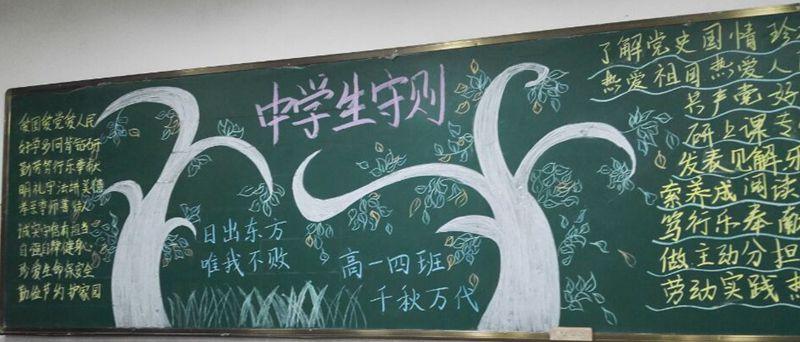 中学生守则
爱国爱党爱人民
好学多问肯钻研
勤劳笃行乐奉献
明礼守法讲美德
孝亲尊师善待人
诚实守信有担当
自强自律健身心
珍爱生命保安全
勤俭节约护家园
日出东方
唯我不败
高一四班
千秋万代
了解党史国情珍
热爱祖国热爱人
共产党好
研上课专
发表见解乐
索养成阅读
笃行乐奉献
做主动分担
劳动实践热